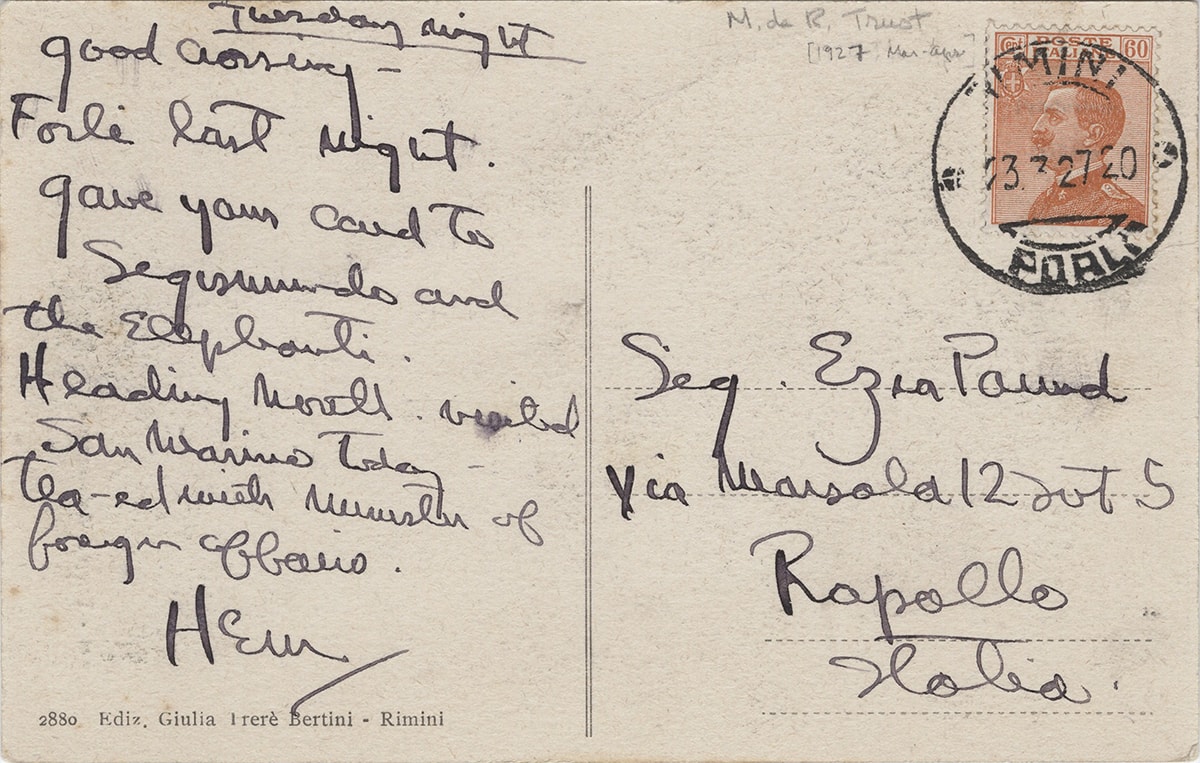 Tuesday night
good crossing -
Forli last night.
gave your card to
Segismundo and
the Elephanti.
Heading North. visited
San Marino today -
tea-ed with Minister of
foreign affairs.
HEM
2880 Ediz. Giulia Trerè Bertini - Rimini
M. de R. Trust
[1927. Mar-Apr]
POSTE
ITALIANE
60
RIMINI
23.3.27 20
FORLI
Seg. Ezra Pound
Via Marsala 12 int 5
Rapallo
Italia.